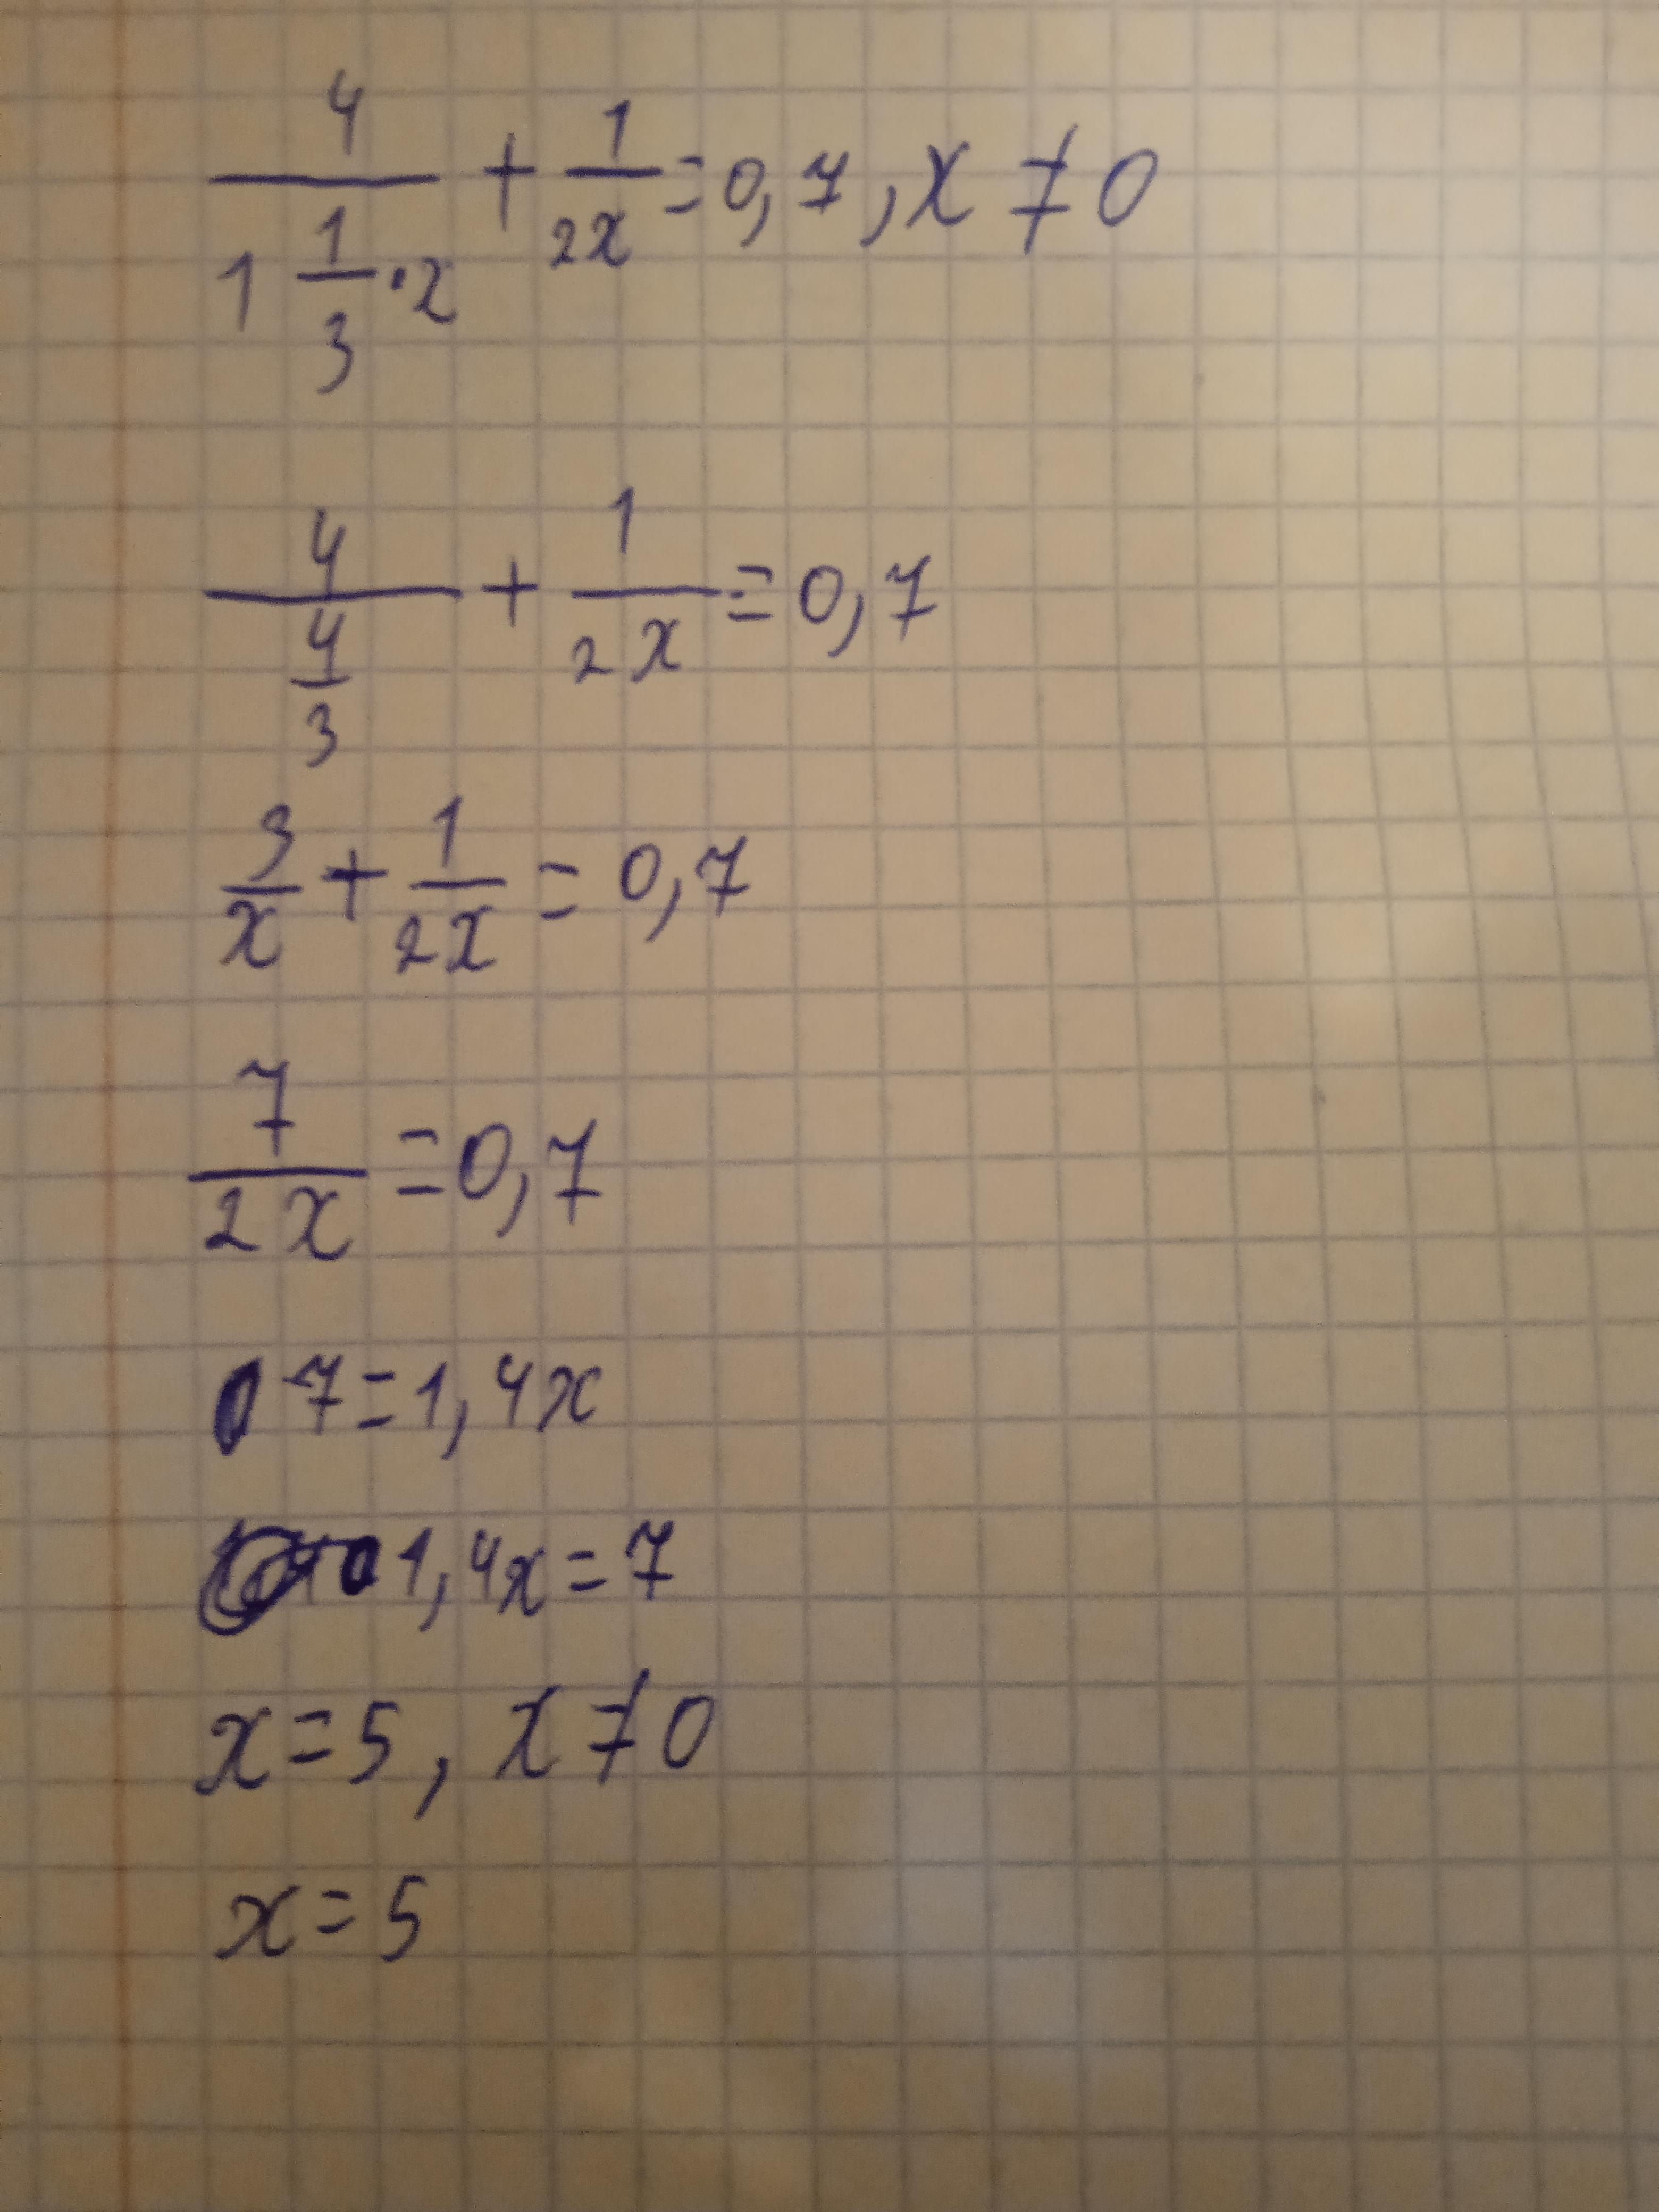 4/(1 1/3 · 2) + 1/(2x) = 0,7 , x ≠ 0
4/(4/3) + 1/(2x) = 0,7
3/x + 1/(2x) = 0,7
7/(2x) = 0,7
7 = 1,4x
1,4x = 7
x = 5 , x ≠ 0
x = 5